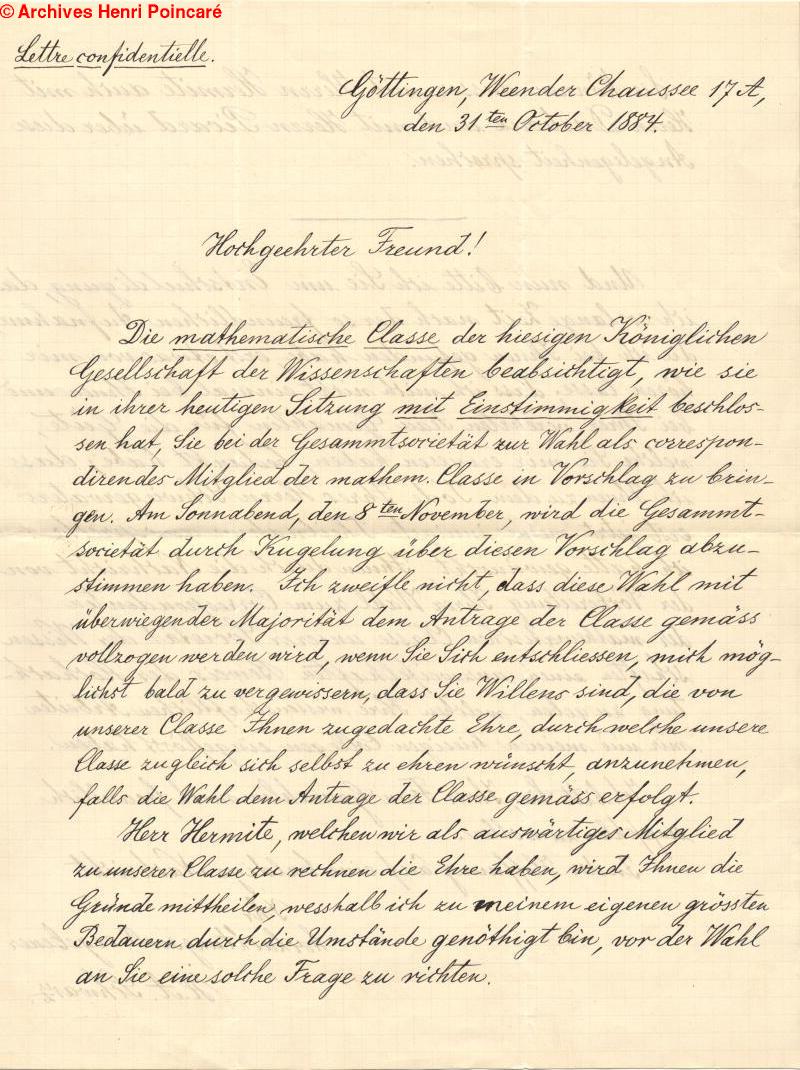 © Archives Henri Poincaré
Lettre confidentielle.
Göttingen, Weender Chaussee 17 A,
den 31ten October 1884.
Hochgeehrter Freund!
Die mathematische Classe der hiesigen Königlichen
Gesellschaft der Wissenschaften beabsichtigt, wie sie
in ihrer heutigen Sitzung mit Einstimmigkeit beschlos-
sen hat, Sie bei der Gesammtsocietät zur Wahl als correspon-
direndes Mitglied der mathem. Classe in Vorschlag zu brin-
gen. Am Sonnabend, den 8ten November, wird die Gesammt-
societät durch Kugelung über diesen Vorschlag abzu-
stimmen haben. Ich zweifle nicht, dass diese Wahl mit
überwiegender Majorität dem Antrage der Classe gemäss
vollzogen werden wird, wenn Sie Sich entschliessen, mich mög-
lichst bald zu vergewissern, dass Sie Willens sind, die von
unserer Classe Ihnen zugedachte Ehre, durch welche unsere
Classe zugleich sich selbst zu ehren wünscht, anzunehmen,
falls die Wahl dem Antrage der Classe gemäss erfolgt.
Herr Hermite, welchen wir als auswärtiges Mitglied
zu unserer Classe zu rechnen die Ehre haben, wird Ihnen die
Gründe mittheilen, wesshalb ich zu meinem eigenen grössten
Bedauern durch die Umstände genöthigt bin, vor der Wahl
an Sie eine solche Frage zu richten.